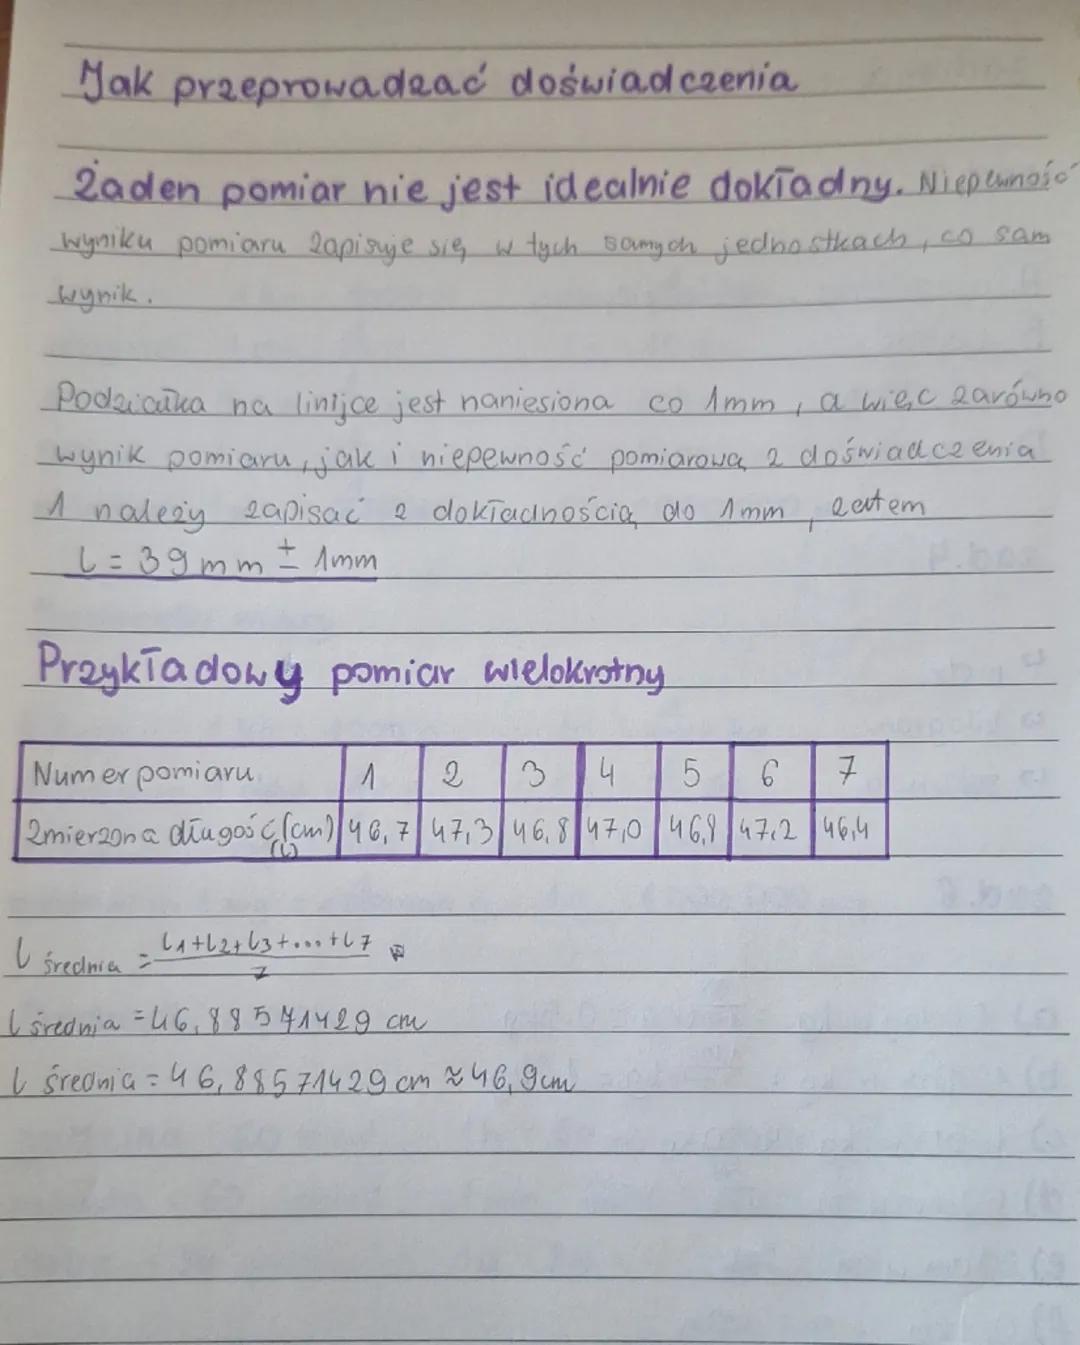 Jak przeprowadzać doświadczenia
Żaden pomiar nie jest idealnie dokładny. Niepewność
wyniku pomiaru zapisuje się w tych samych jednostkach, co sam
wynik.
Podziałka na linijce jest naniesiona co 1mm, a więc zarówno
wynik pomiaru, jak i niepewność pomiarową z doświadczenia
1 należy zapisać z dokładnością do 1mm, zatem
l = 39mm ± 1mm
Przykładowy pomiar wielokrotny
Numer pomiaru 1 2 3 4 5 6 7
Zmierzona długość (cm) 46,7 47,3 46,8 47,0 46,8 47,2 46,4
(l)
l średnia = l1+l2+l3+...+l7
7
l średnia = 46,88571429 cm
l średnia = 46,88571429 cm ≈ 46,9cm